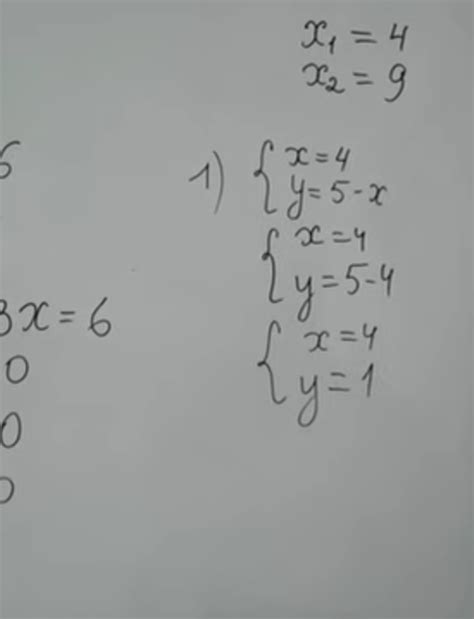 x₁ = 4
x₂ = 9
1) { x = 4
y = 5 - x
{ x = 4
y = 5 - 4
{ x = 4
y = 1
x = 6
0
0